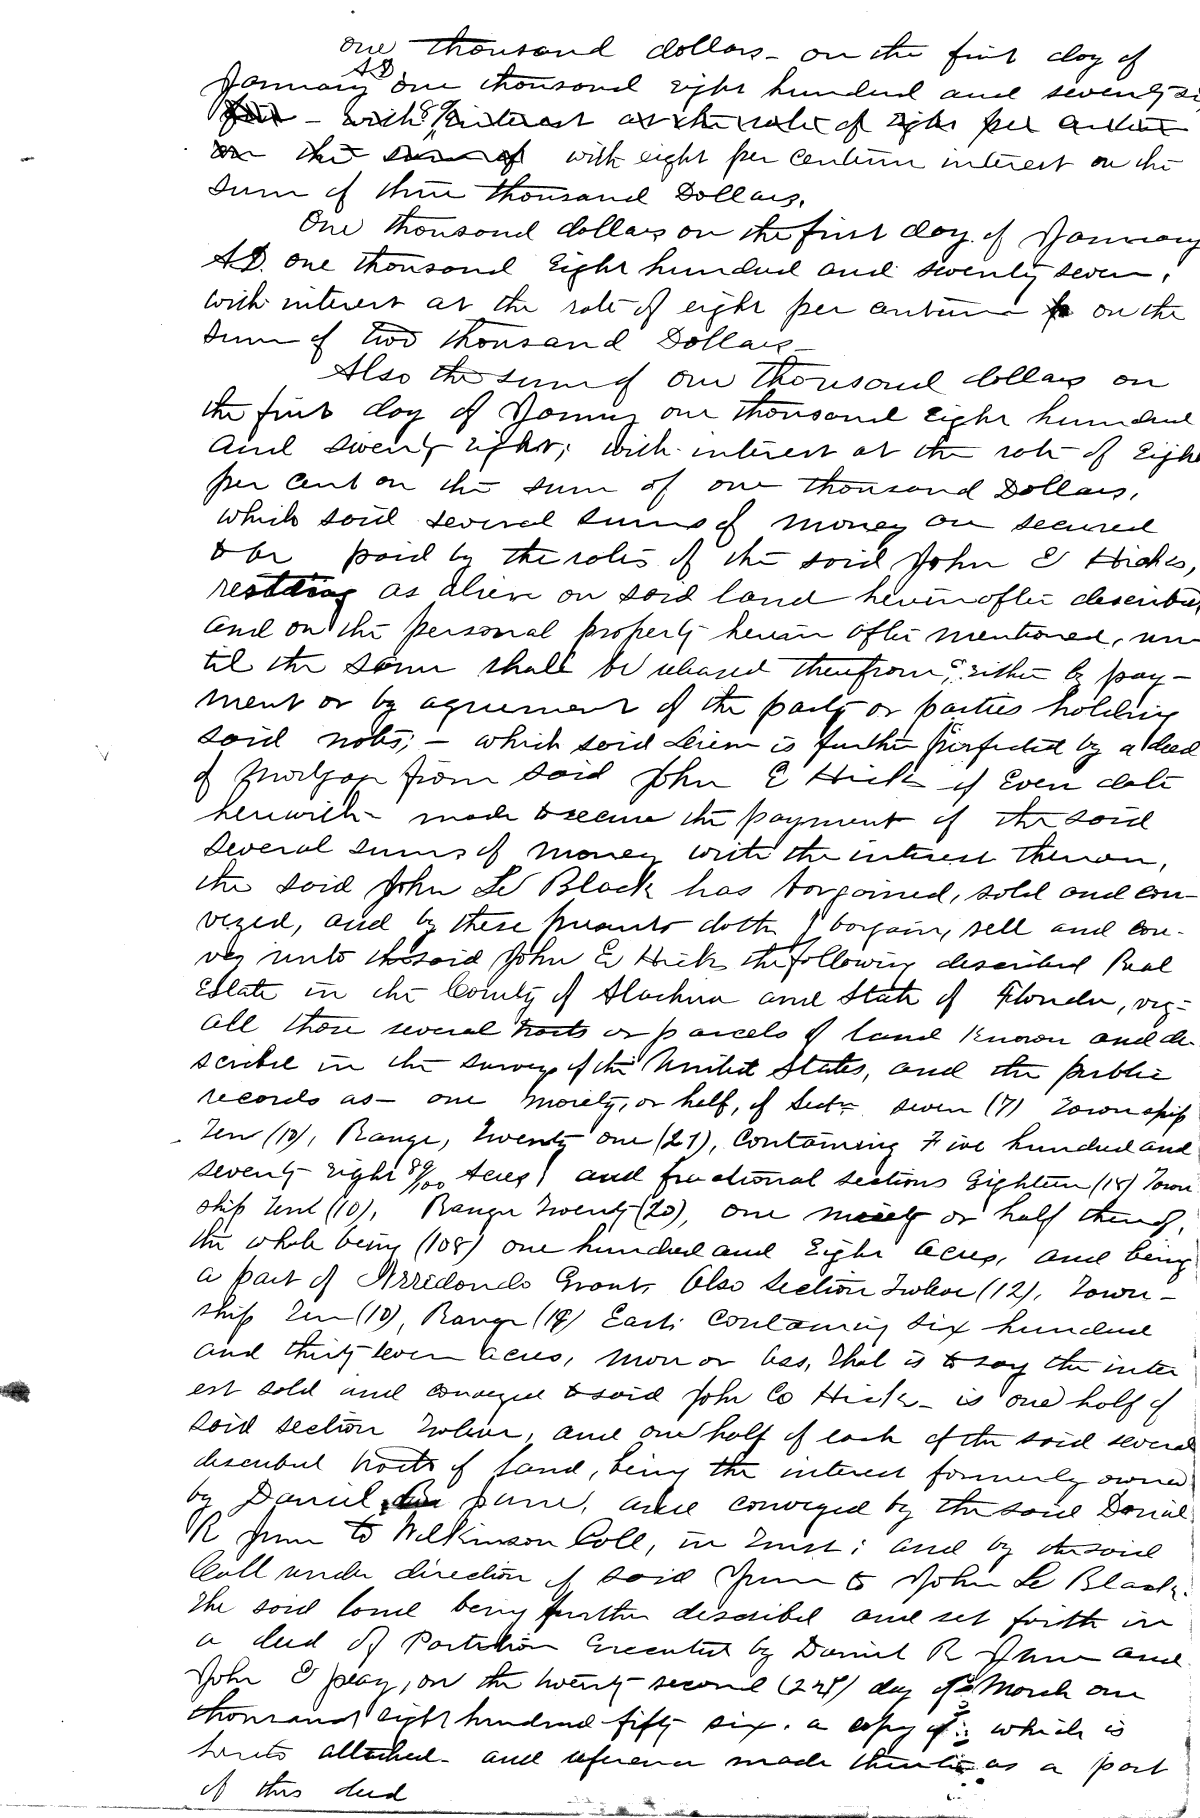 one thousand dollars - on the first day of
January A.D. one thousand eight hundred and seventy six
- with 8% interest at the rate of eight per centum
on the sum of with eight per centum interest on the
sum of three thousand Dollars.
One thousand dollars on the first day of January
A.D. one thousand Eight hundred and seventy seven,
with interest at the rate of eight per centum on the
sum of two thousand Dollars -
Also the sum of one thousand dollars on
the first day of January one thousand Eight hundred
and seventy eight, with interest at the rate of Eight
per cent on the sum of one thousand Dollars,
which said several sums of money are secured
to be paid by the notes of the said John E Hicks,
resting as alien on said land hereinafter described
and on the personal property herein after mentioned, un-
til the same shall be released therefrom, either by pay-
ment or by agreement of the party or parties holding
said notes; - which said Lien is further perfected by a deed
of Mortgage from said John E Hicks of even date
herewith - made to secure the payment of the said
several sums of money with the interest thereon,
the said John Le Black has bargained, sold and con-
veyed, and by these presents doth bargain, sell and con-
vey unto the said John E Hicks the following described Real
Estate in the County of Alachua and State of Florida, viz -
all those several tracts or parcels of land known and de-
scribed in the surveys of the United States, and the public
records as - one moiety, or half, of Sectn seven (7) Township
Ten (10), Range, Twenty one (21), containing Five hundred and
seventy eight 80/100 Acres; and fractional sections Eighteen (18) Town
ship Ten (10), Range Twenty (20), one moiety or half thereof,
the whole being (108) one hundred and Eight acres, and being
a part of Arredondo Grant, Also section Twelve (12), Town -
ship Ten (10), Range (19) East containing six hundred
and thirty seven acres, more or less, That is to say the inter
est sold and conveyed to said John E Hicks - is one half of
said section Twelve, and one half of each of the said several
described tracts of land, being the interest formerly owned
by Daniel and conveyed by the said Daniel
R to Wilkinson Call, in Trust; and by the said
Call under direction of said to John Le Black.
The said land being further described and set forth in
a deed of Partition Executed by Daniel R and
John E peay, on the twenty second (22d) day of March one
thousand eight hundred fifty six. a copy of which is
hereto attached - and reference made thereto as a part
of this deed